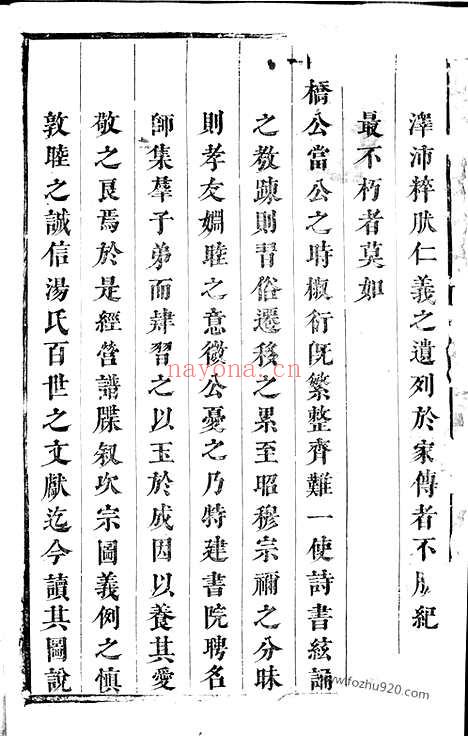 澤沛粹肰仁義之遺列於家傳者不勝紀
最不朽者莫如
橋公當公之時椒衍旣繁整齊難一使詩書絃誦
之教踈則習俗遷移之累至昭穆宗禰之分昧
則孝友婣睦之意微公憂之乃特建書院聘名
師集羣子弟而肄習之以玉於成因以養其愛
敬之良焉於是經營譜牒叙次宗圖義例之愼
敦睦之誠信湯氏百世之文獻迄今讀其圖說
nayona.cn
www.fozhu920.com